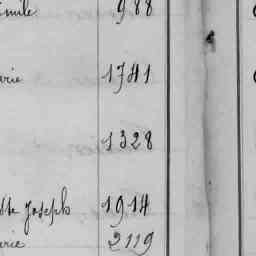 mile 988
arie 1741
1328
Joseph 1914
arie 2119